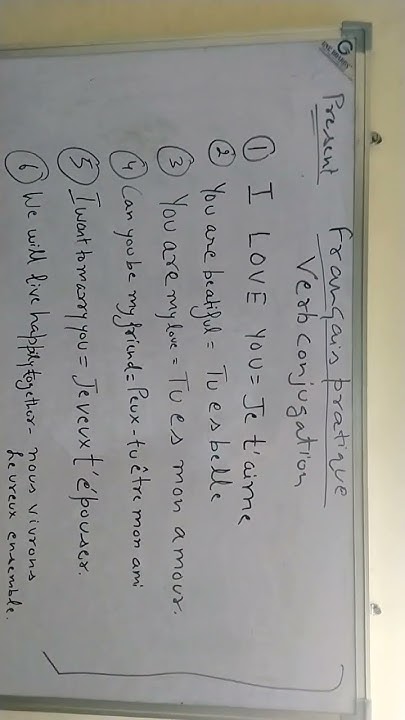 Français pratique
Present Verb conjugation
① I LOVE YOU = Je t'aime
② You are beatiful = Tu es belle
③ You are my love = Tu es mon amour.
④ Can you be my friend = Peux-tu être mon ami
⑤ I want to marry you = Je veux t'épouser.
⑥ We will live happily together - nous vivrons
heureux ensemble.